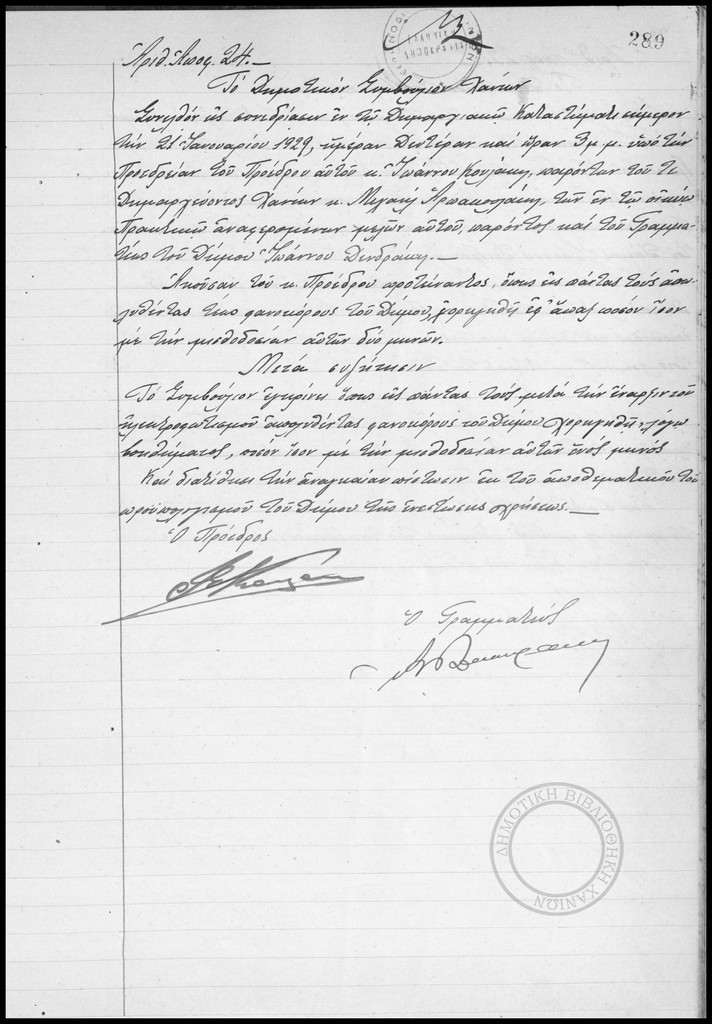 289
Ἀριθ. Ἀποφ. 24.—
Τὸ Δημοτικόν Συμβούλιον Χανίων
Συνελθόν εἰς συνεδρίασιν ἐν τῷ Δημαρχιακῷ Καταστήματι σήμερον
τὴν 21 Ἰανουαρίου 1929, ἡμέραν Δευτέραν καὶ ὥραν 3 μ.μ. ὑπό τὴν
Προεδρείαν τοῦ Προέδρου αὐτοῦ κ. Ἰωάννου παρόντων τοῦ τε
Δημαρχεύοντος Χανίων κ. τῶν ἐν τῷ οἰκείῳ
Πρακτικῷ ἀναφερομένων μελῶν αὐτοῦ, παρόντος καὶ τοῦ Γραμμα-
τέως τοῦ Δήμου Ἰωάννου
Ἀκοῦσαν τοῦ κ. Προέδρου προτείναντος, ὅπως εἰς πάντας τούς ἀπο-
λυθέντας τέως φανοκόρους τοῦ Δήμου, χορηγηθῇ ἐφ' ἅπαξ ποσόν ἴσον
μέ τὴν μισθοδοσίαν αὐτῶν δύο μηνῶν.
Μετά συζήτησιν
Τὸ Συμβούλιον ἐγκρίνει ὅπως εἰς πάντας τούς μετά τὴν ἔναρξιν τοῦ
ἠλεκτροφωτισμοῦ ἀπολυθέντας φανοκόρους τοῦ Δήμου χορηγηθῇ, λόγῳ
βοηθήματος, ποσόν ἴσον μέ τὴν μισθοδοσίαν αὐτῶν ἑνός μηνός
Καί διατίθησι τὴν ἀναγκαίαν πίστωσιν ἐκ τοῦ ἀποθεματικοῦ τοῦ
προϋπολογισμοῦ τοῦ Δήμου τῆς ἐνεστώσης χρήσεως.—
Ὁ Πρόεδρος
Ὁ Γραμματεύς
ΔΗΜΟΤΙΚΗ ΒΙΒΛΙΟΘΗΚΗ ΧΑΝΙΩΝ